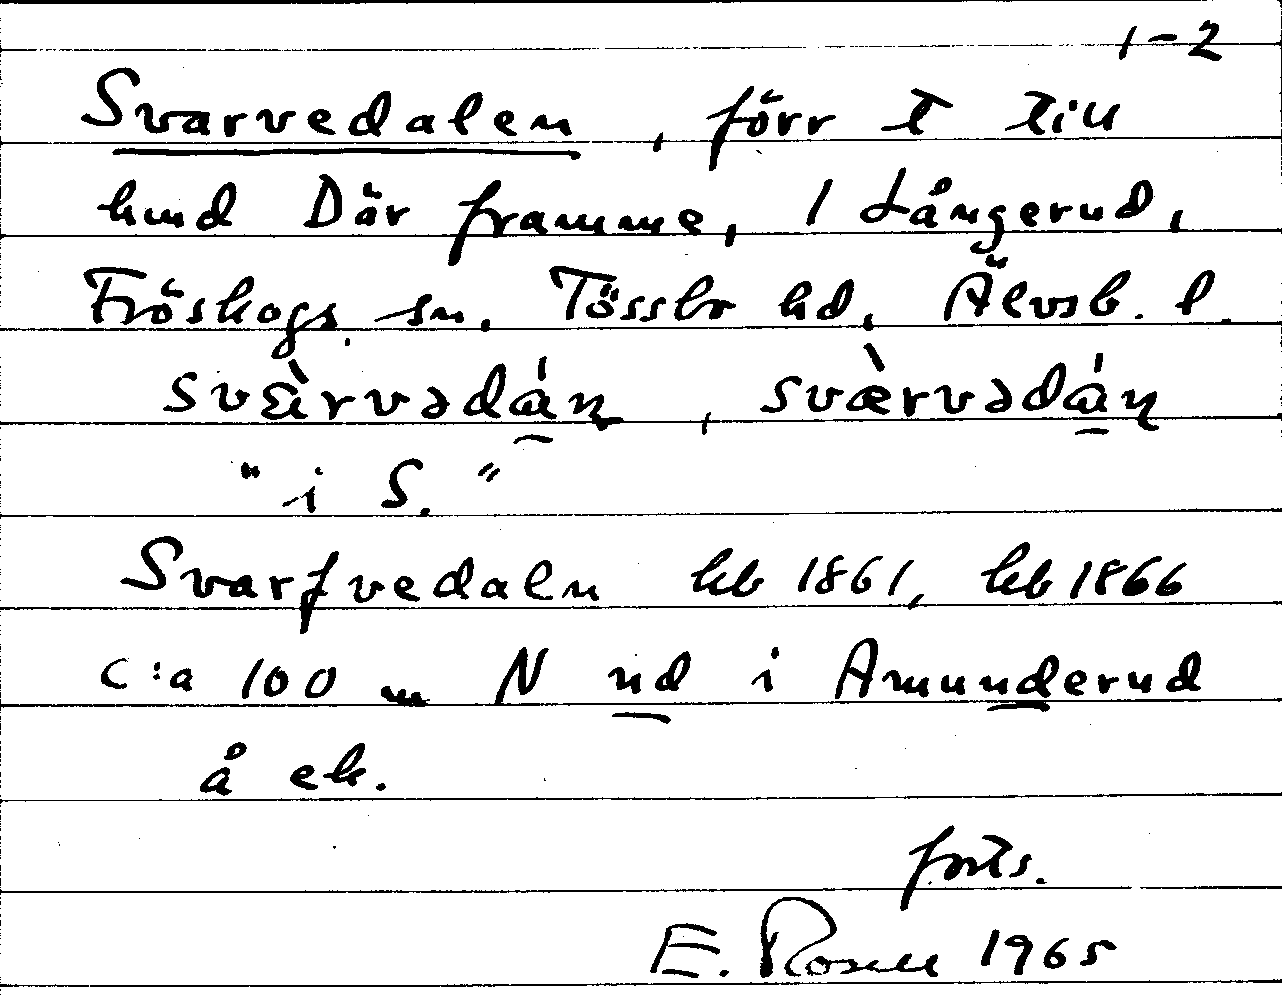 1-2
Svarvedalen, förr t till
hmd Där framme, 1 Långerud,
Fröskogs sn. Tössbo hd, Älvsb. l.
svæ̀rvədáṇ, svæ̀rvədáṇ
"i S."
Svarfvedaln kb 1861, kb 1866
c:a 100 m N nd i Amunderud
å ek.
forts.
E. Rosell 1965